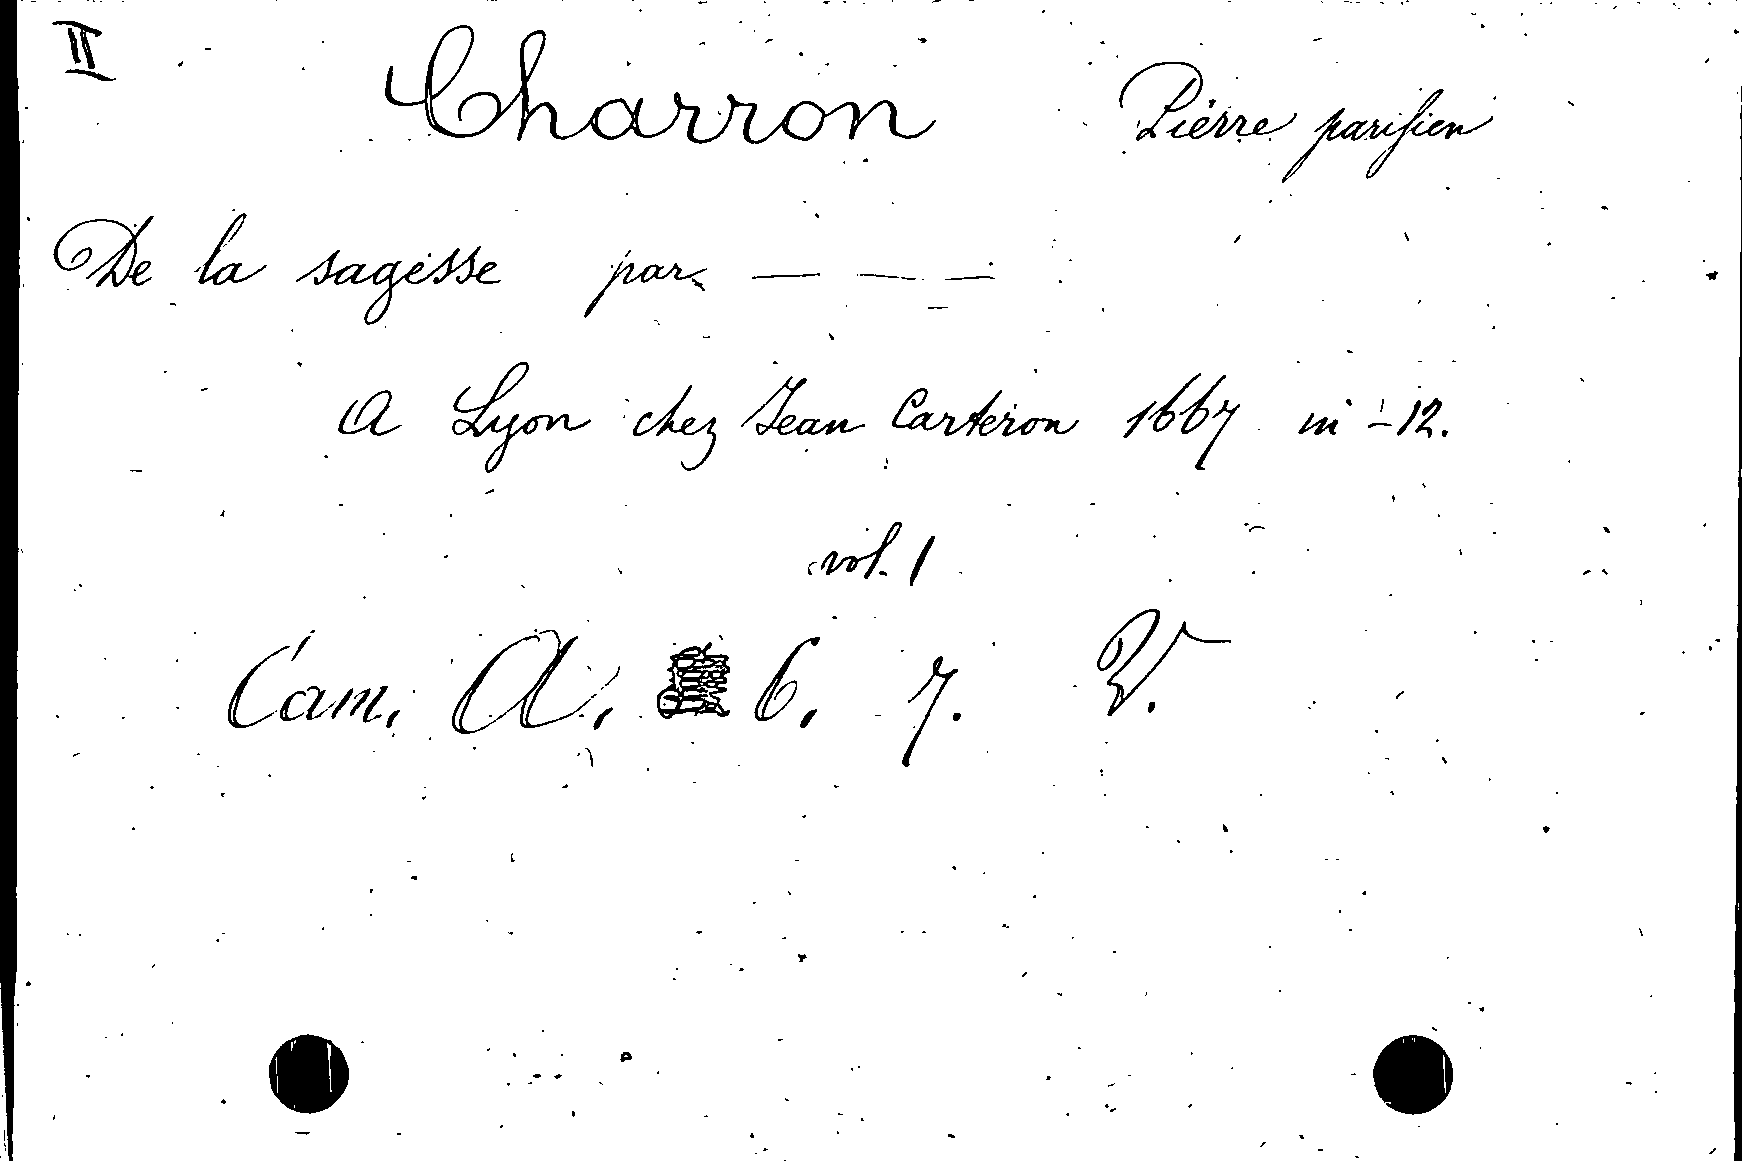 II Charron Pierre parisien
De la sagesse par — — —
A Lyon chez Jean Carteron 1667 in-12.
vol. 1
Cam. A. 6. 7. V.